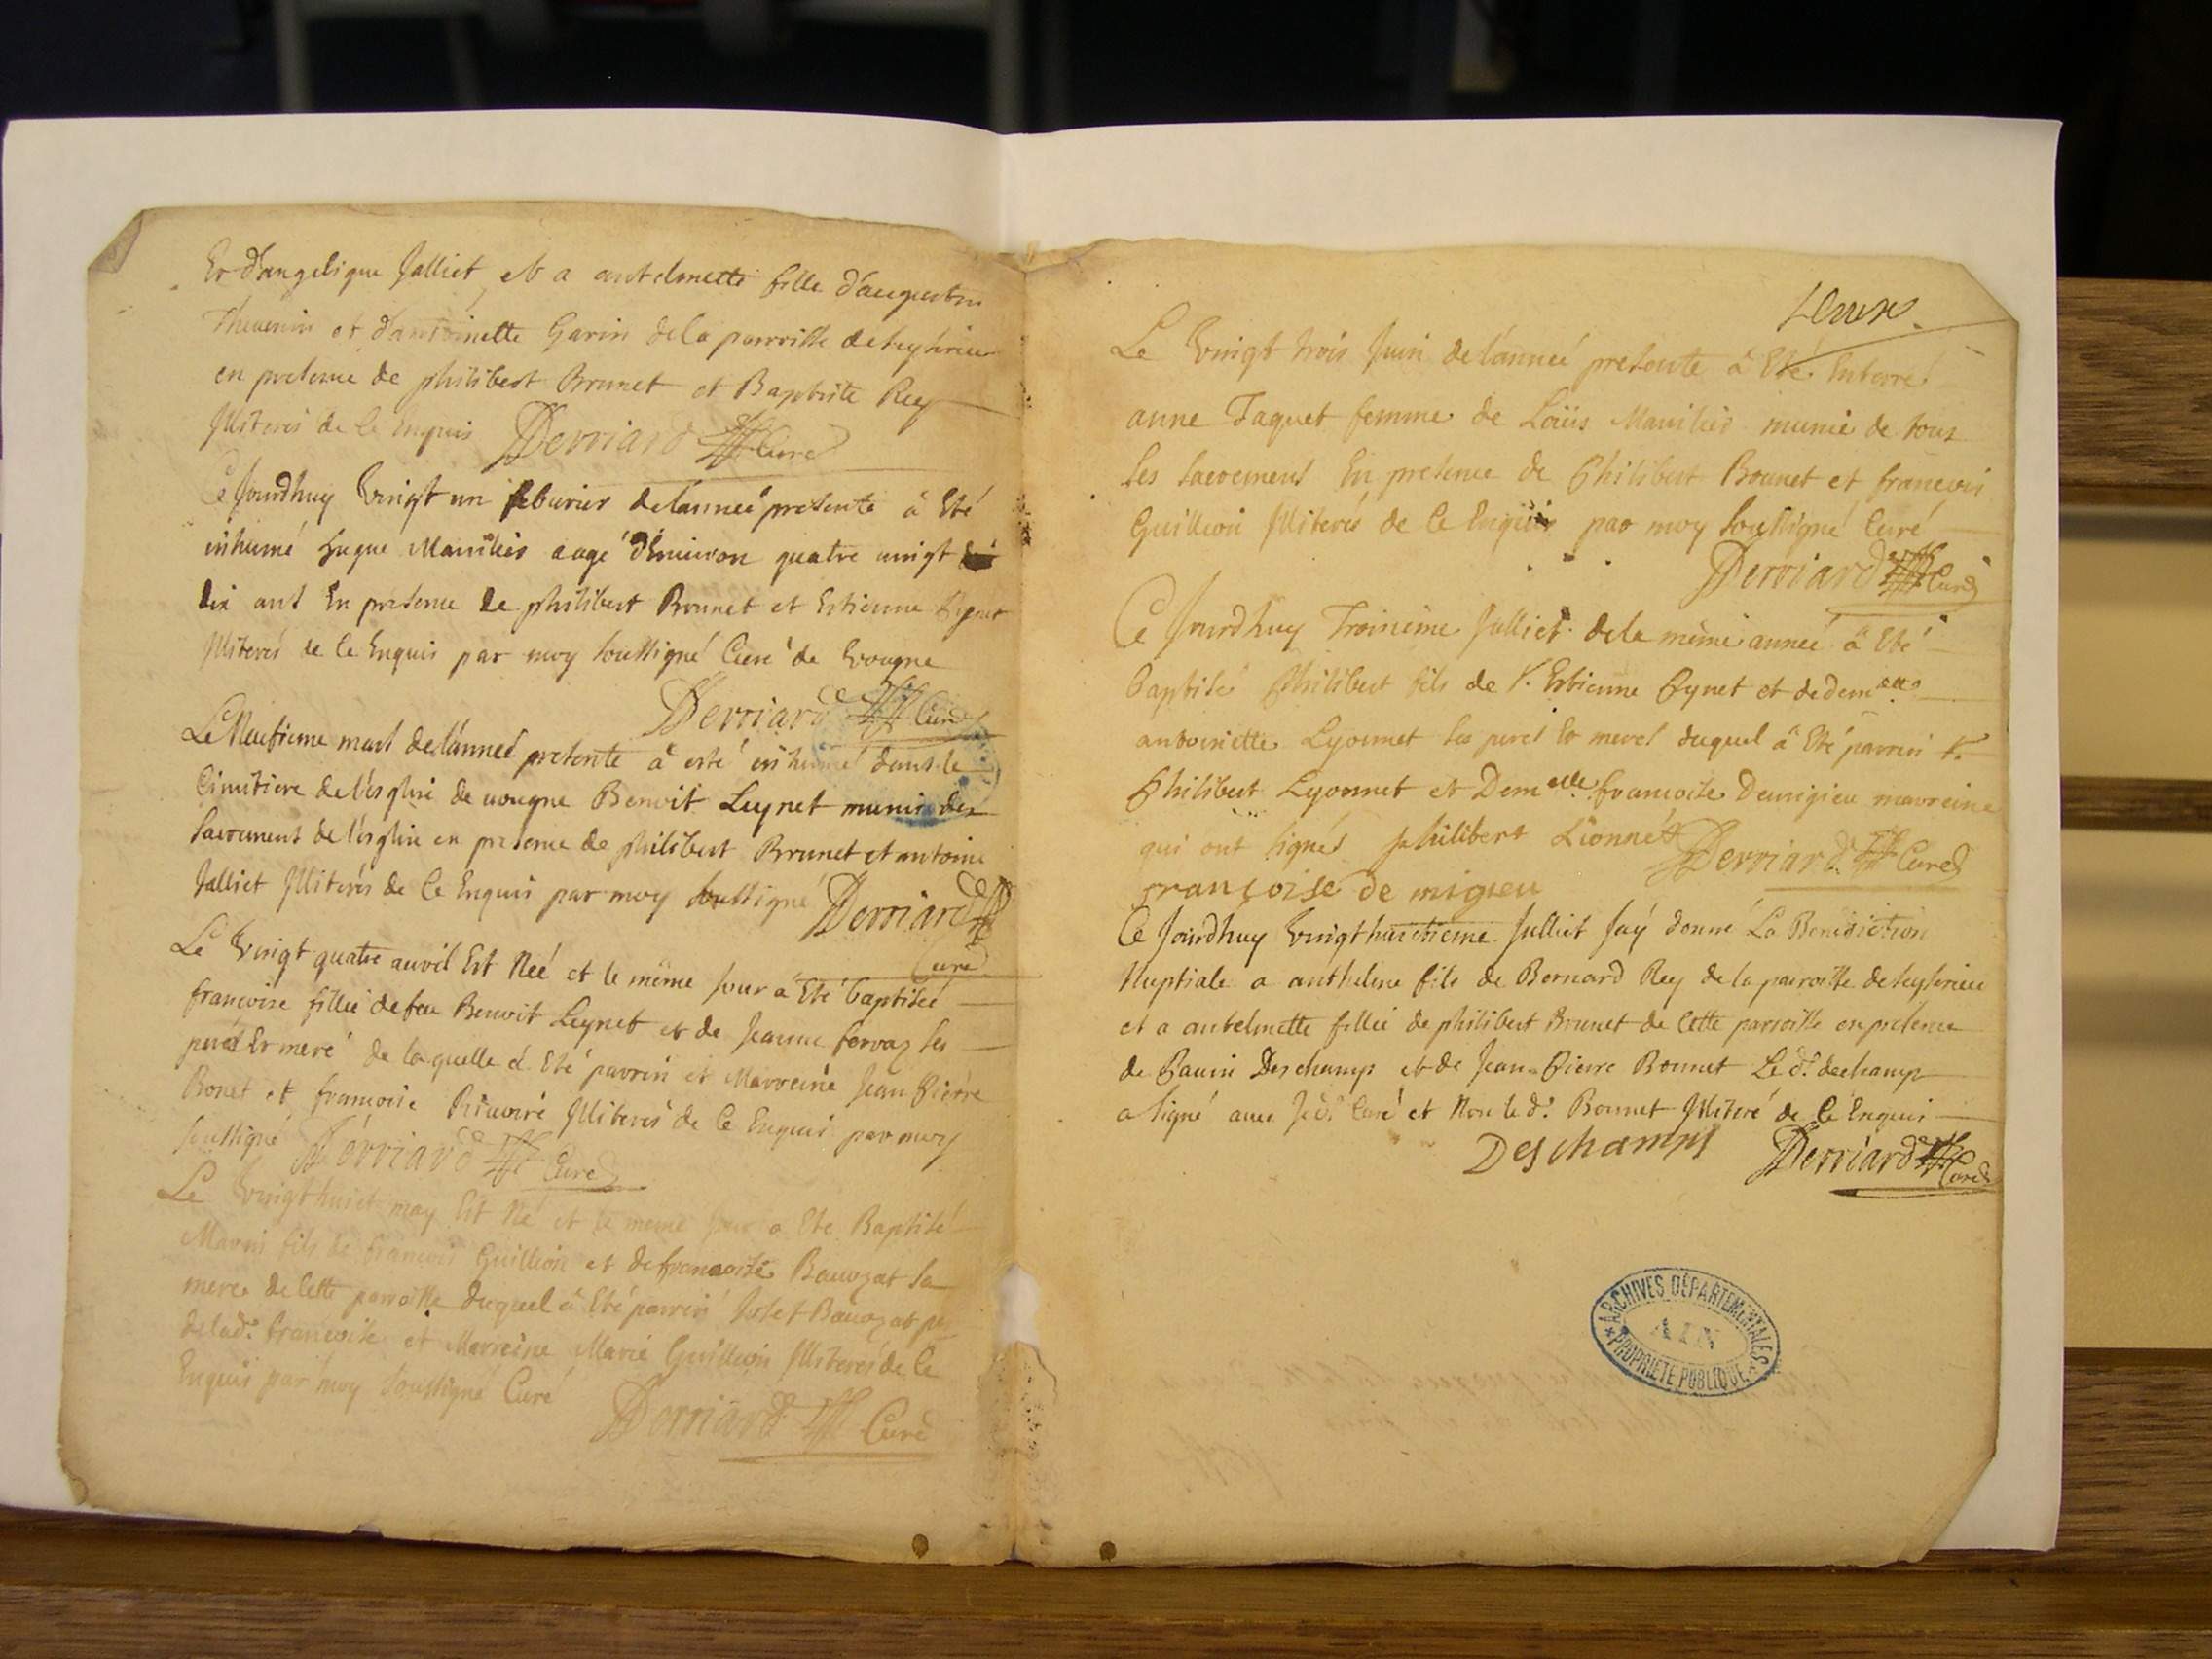 Et d'angelique Jalliet et a antelmette fille d'augustin
Thevenin et d'antoinette Garin de la parroisse de seyssrieu
en presence de philibert Brunet et Baptiste Rey
Illiterés de ce Enquis Derriard Curé
Ce Jourdhuy Vingt un feburier de lanneé presente à Eté
inhumé hugue Manilier aagé d'Enuiron quatre uingt
dix ans En presence de philibert Bonnet et Estienne
Illiterés de ce Enquis par moy soussigné Curé de Vougne
Derriard Curé
Le Neufieme mars de lanneé presente à esté inhumé dans le
Cimitiere de l'esglise de uougne Benoit Leynet munis des
sacrement de l'esglise en presence de philibert Brunet et antoine
Jalliet Illiterés de Ce Enquis par moy soussigné Derriard
Curé
Le Vingt quatre auvril Est Neé et le même Jour à Eté baptiseé
francoise fille de feu Benoit Leynet et de Jeanne fervaz ses
peré Et meré de laquelle à Eté parrin et Marreine Jean Pierre
Bonet et francoise Illiterés de Ce Enquis par moy
soussigné Derriard Curé
Le Vingt huict may Est Né et le meme Jour a Ete Baptisé
Marin fils de francois Guillion et de francoise Bauozat sa
mere de Cette parroisse duquel à Eté parrin Josef Bauozat
de lad.e francoise et Marreine Marie Guillion Illiterés de Ce
Enquis par moy soussigné Curé
Derriard Curé
Le Vingt trois Juin de lanneé presente à Eté Enterré
anne Jaquet femme de Loüis Manilier munie de tous
les sacremens En presence de Philibert Bonnet et francois
Guillion Illiterés de Ce Enquis par moy soussigné Curé
Derriard Curé
Ce Jourdhuy Troisieme Julliet de la même anneé à Eté
baptisé Philibert fils de s. Estienne Pynet et de dem.elle
antoinette Lyonnet ses peres et meres duquel à Eté parrin s.
Philibert Lyonnet et Demelle francoise Demigieu marreine
qui ont signés philibert Lionnet Derriard Curé
françoise de migieu
Ce Jourdhuy Vingt huictieme Julliet Jaÿ donné La Benediction
Nuptiale a anthelme fils de Bernard Rey de la parroisse de seyssrieu
et a antelmette fille de philibert Brunet de Cette parroisse en presence
de Deschamps et de Jean-Pierre Bonnet Le d.t dechamp
a signé auec Curé et Non le d.t Bonnet Illiteré de Ce Enquis
Deschamps Derriard Curé
ARCHIVES DÉPARTEMENTALES
AIN
PROPRIÉTÉ PUBLIQUE